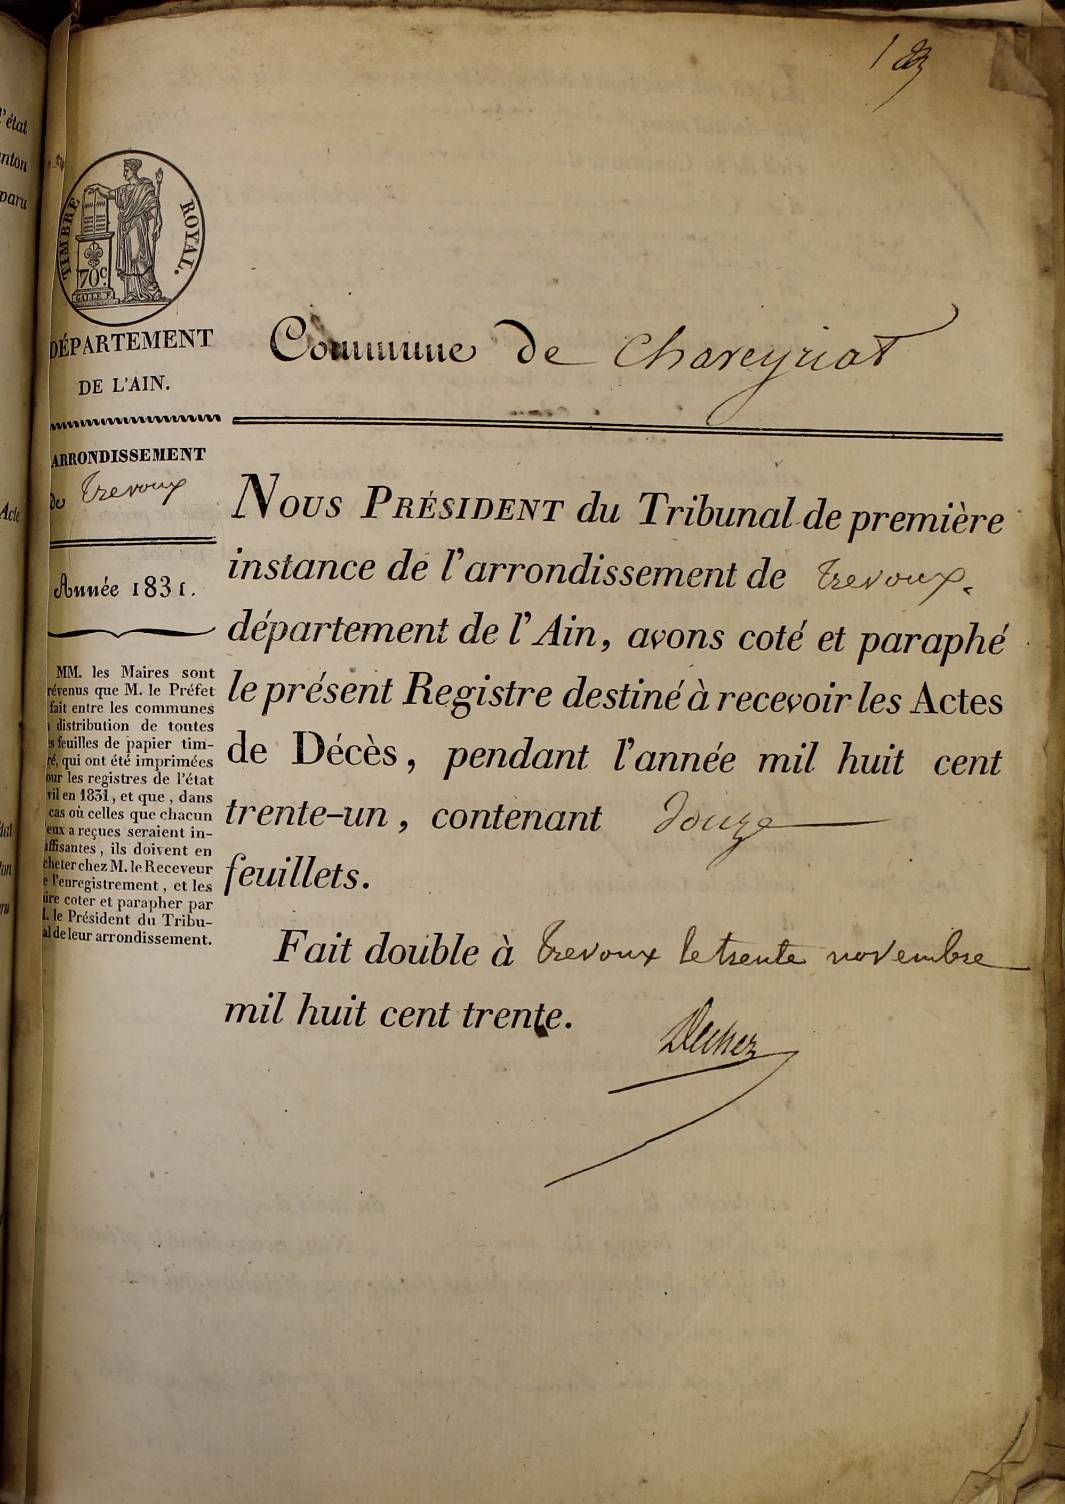 1
TIMBRE ROYAL.
70c
GALLE F.
DÉPARTEMENT
DE L'AIN.
ARRONDISSEMENT
de Trevoux
Année 1831.
MM. les Maires sont
révenus que M. le Préfet
fait entre les communes
distribution de toutes
s feuilles de papier tim-
ré, qui ont été imprimées
our les registres de l'état
vil en 1831, et que, dans
cas où celles que chacun
eux a reçues seraient in-
uffisantes, ils doivent en
cheter chez M. le Receveur
e l'enregistrement, et les
ire coter et parapher par
M. le Président du Tribu-
al de leur arrondissement.
Commune de Chaveyriat
NOUS PRÉSIDENT du Tribunal de première
instance de l'arrondissement de Trevoux.
département de l'Ain, avons coté et paraphé
le présent Registre destiné à recevoir les Actes
de Décès, pendant l'année mil huit cent
trente-un, contenant douze
feuillets.
Fait double à Trevoux le trente novembre
mil huit cent trente.
l'état
anton
paru
Acte
état
ton
ru